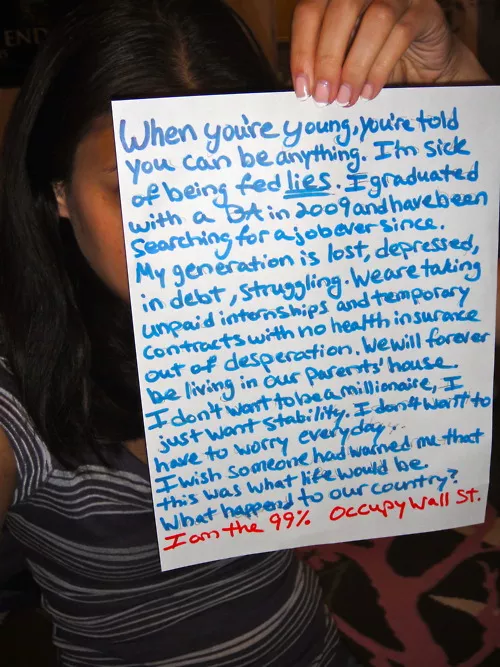 END
When you're young, you're told
you can be anything. I'm sick
of being fed lies. I graduated
with a BA in 2009 and have been
searching for a job ever since.
My generation is lost, depressed,
in debt, struggling. We are taking
unpaid internships and temporary
contracts with no health insurance
out of desperation. We will forever
be living in our parents' house.
I don't want to be a millionaire, I
just want stability. I don't want to
have to worry everyday.
I wish someone had warned me that
this was what life would be.
What happend to our country?
I am the 99% Occupy Wall St.